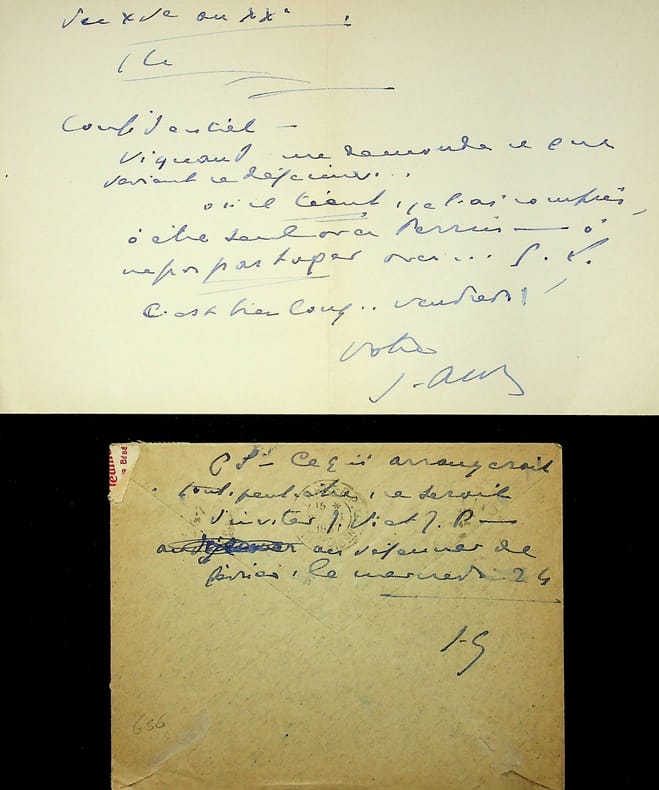 du XVe au XXe :
Confidentiel —
Vignaud me demande ce que
devient ce déjeuner...
où il tient, je l'ai compris,
à être seul avec Perrin — à
ne pas partager avec ... J. V.
C'est bien long .. vendredi !
Votre
PS — Ce qui arrangerait
tout, peut-être, ce serait
d'inviter J. V. et J. P. —
au déjeuner de
février, le mercredi 24
J-G
656